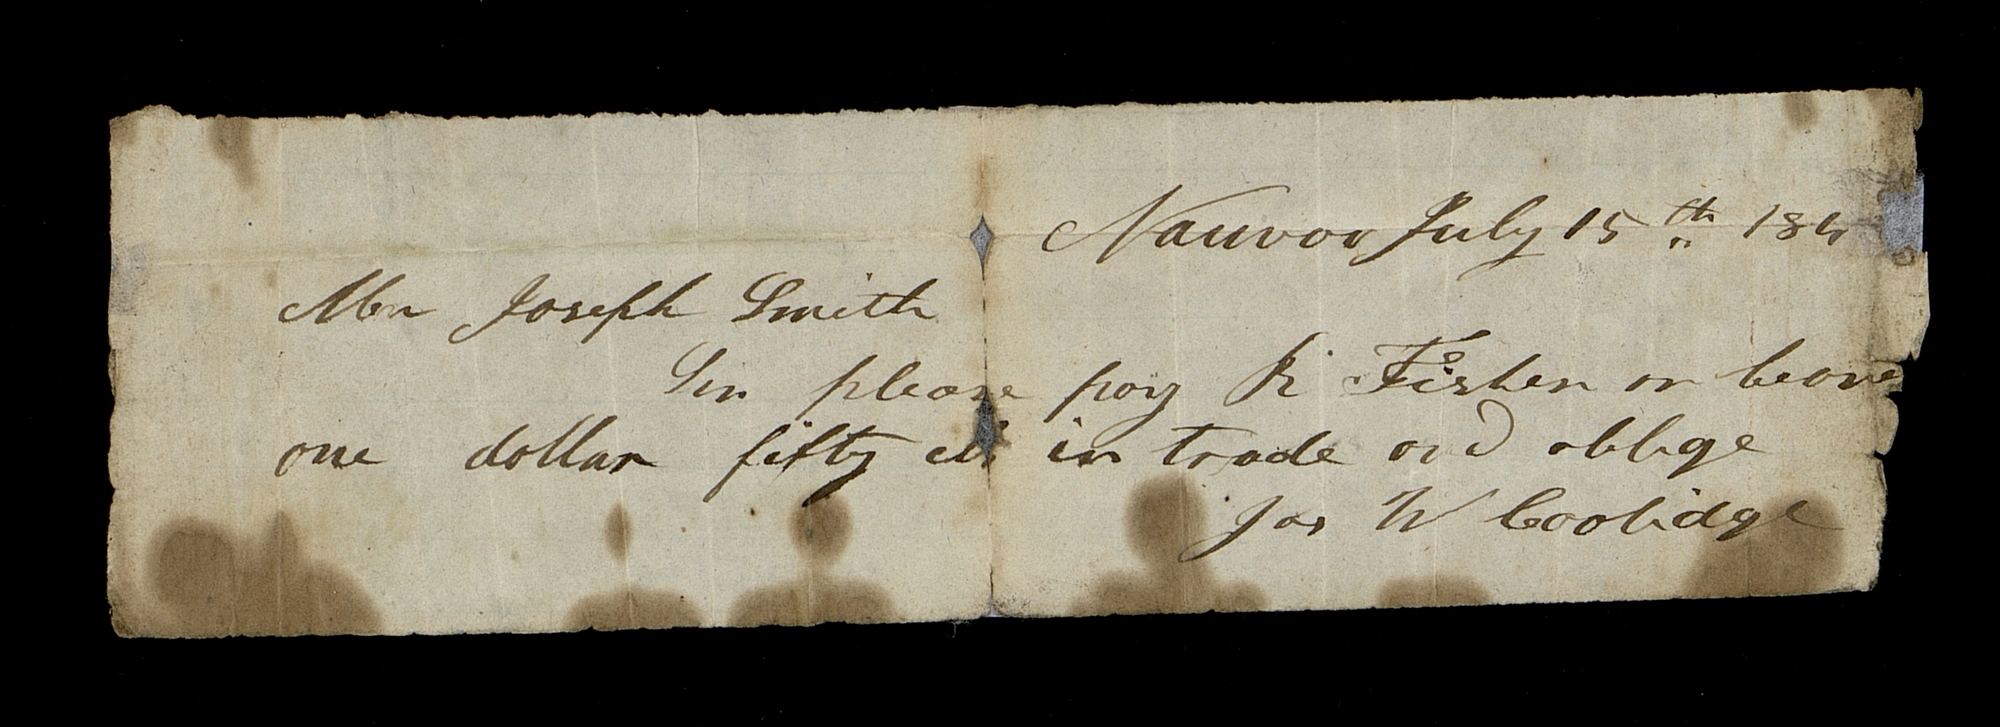 Nauvoo July 15th 184
Mr Joseph Smith
Sir please pay R Fisher or beare
one dollar fifty cts in trade and oblige
Jas W Coolidge